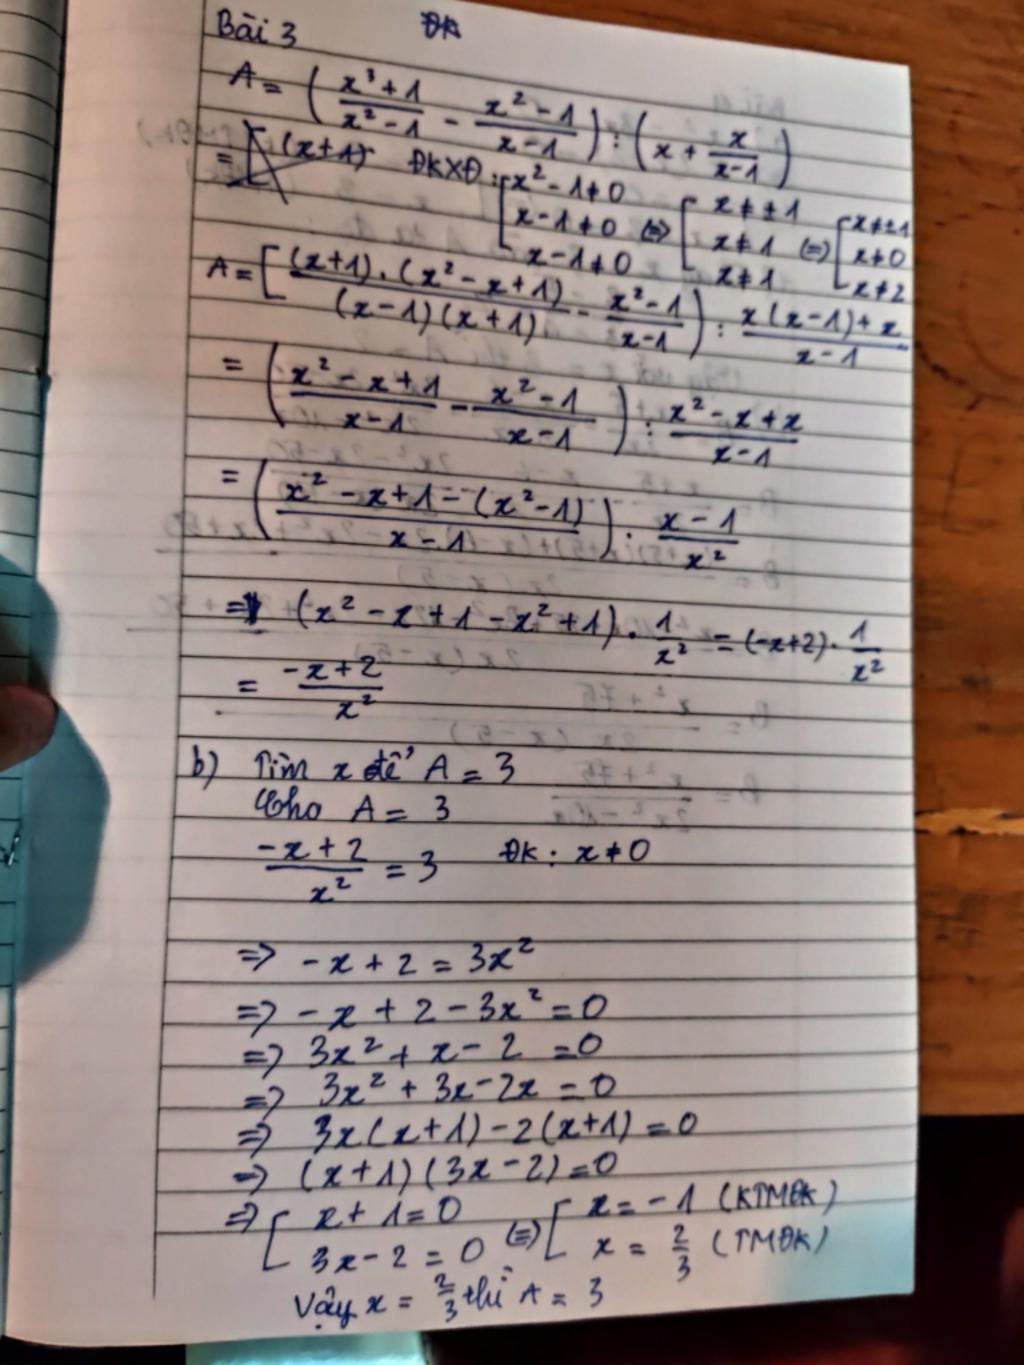 Bài 3 ĐK
A = ( (x³ + 1)/(x² - 1) - (x² - 1)/(x - 1) ) : ( x + x/(x - 1) )
= [ (x+1). ĐKXĐ: [ x² - 1 ≠ 0 ; x - 1 ≠ 0 ; x - 1 ≠ 0 ⇔ [ x ≠ ±1 ; x ≠ 1 ; x ≠ 1 ⇔ [ x ≠ ±1 ; x ≠ 0 ; x ≠ 2
A = [ (x+1).(x² - x + 1)/(x-1)(x+1) - (x² - 1)/(x - 1) ) : (x(x-1) + x)/(x - 1)
= ( (x² - x + 1)/(x - 1) - (x² - 1)/(x - 1) ) : (x² - x + x)/(x - 1)
= ( (x² - x + 1 - (x² - 1))/(x - 1) ) . (x - 1)/x²
= (x² - x + 1 - x² + 1) . 1/x² = (-x+2) . 1/x²
= (-x + 2)/x²
b) Tìm x để A = 3
Cho A = 3
(-x + 2)/x² = 3 ĐK: x ≠ 0
=> -x + 2 = 3x²
=> -x + 2 - 3x² = 0
=> 3x² + x - 2 = 0
=> 3x² + 3x - 2x = 0
=> 3x(x+1) - 2(x+1) = 0
=> (x+1)(3x - 2) = 0
=> [ x + 1 = 0 ; 3x - 2 = 0 ⇔ [ x = -1 (KTMĐK) ; x = 2/3 (TMĐK)
Vậy x = 2/3 thì A = 3